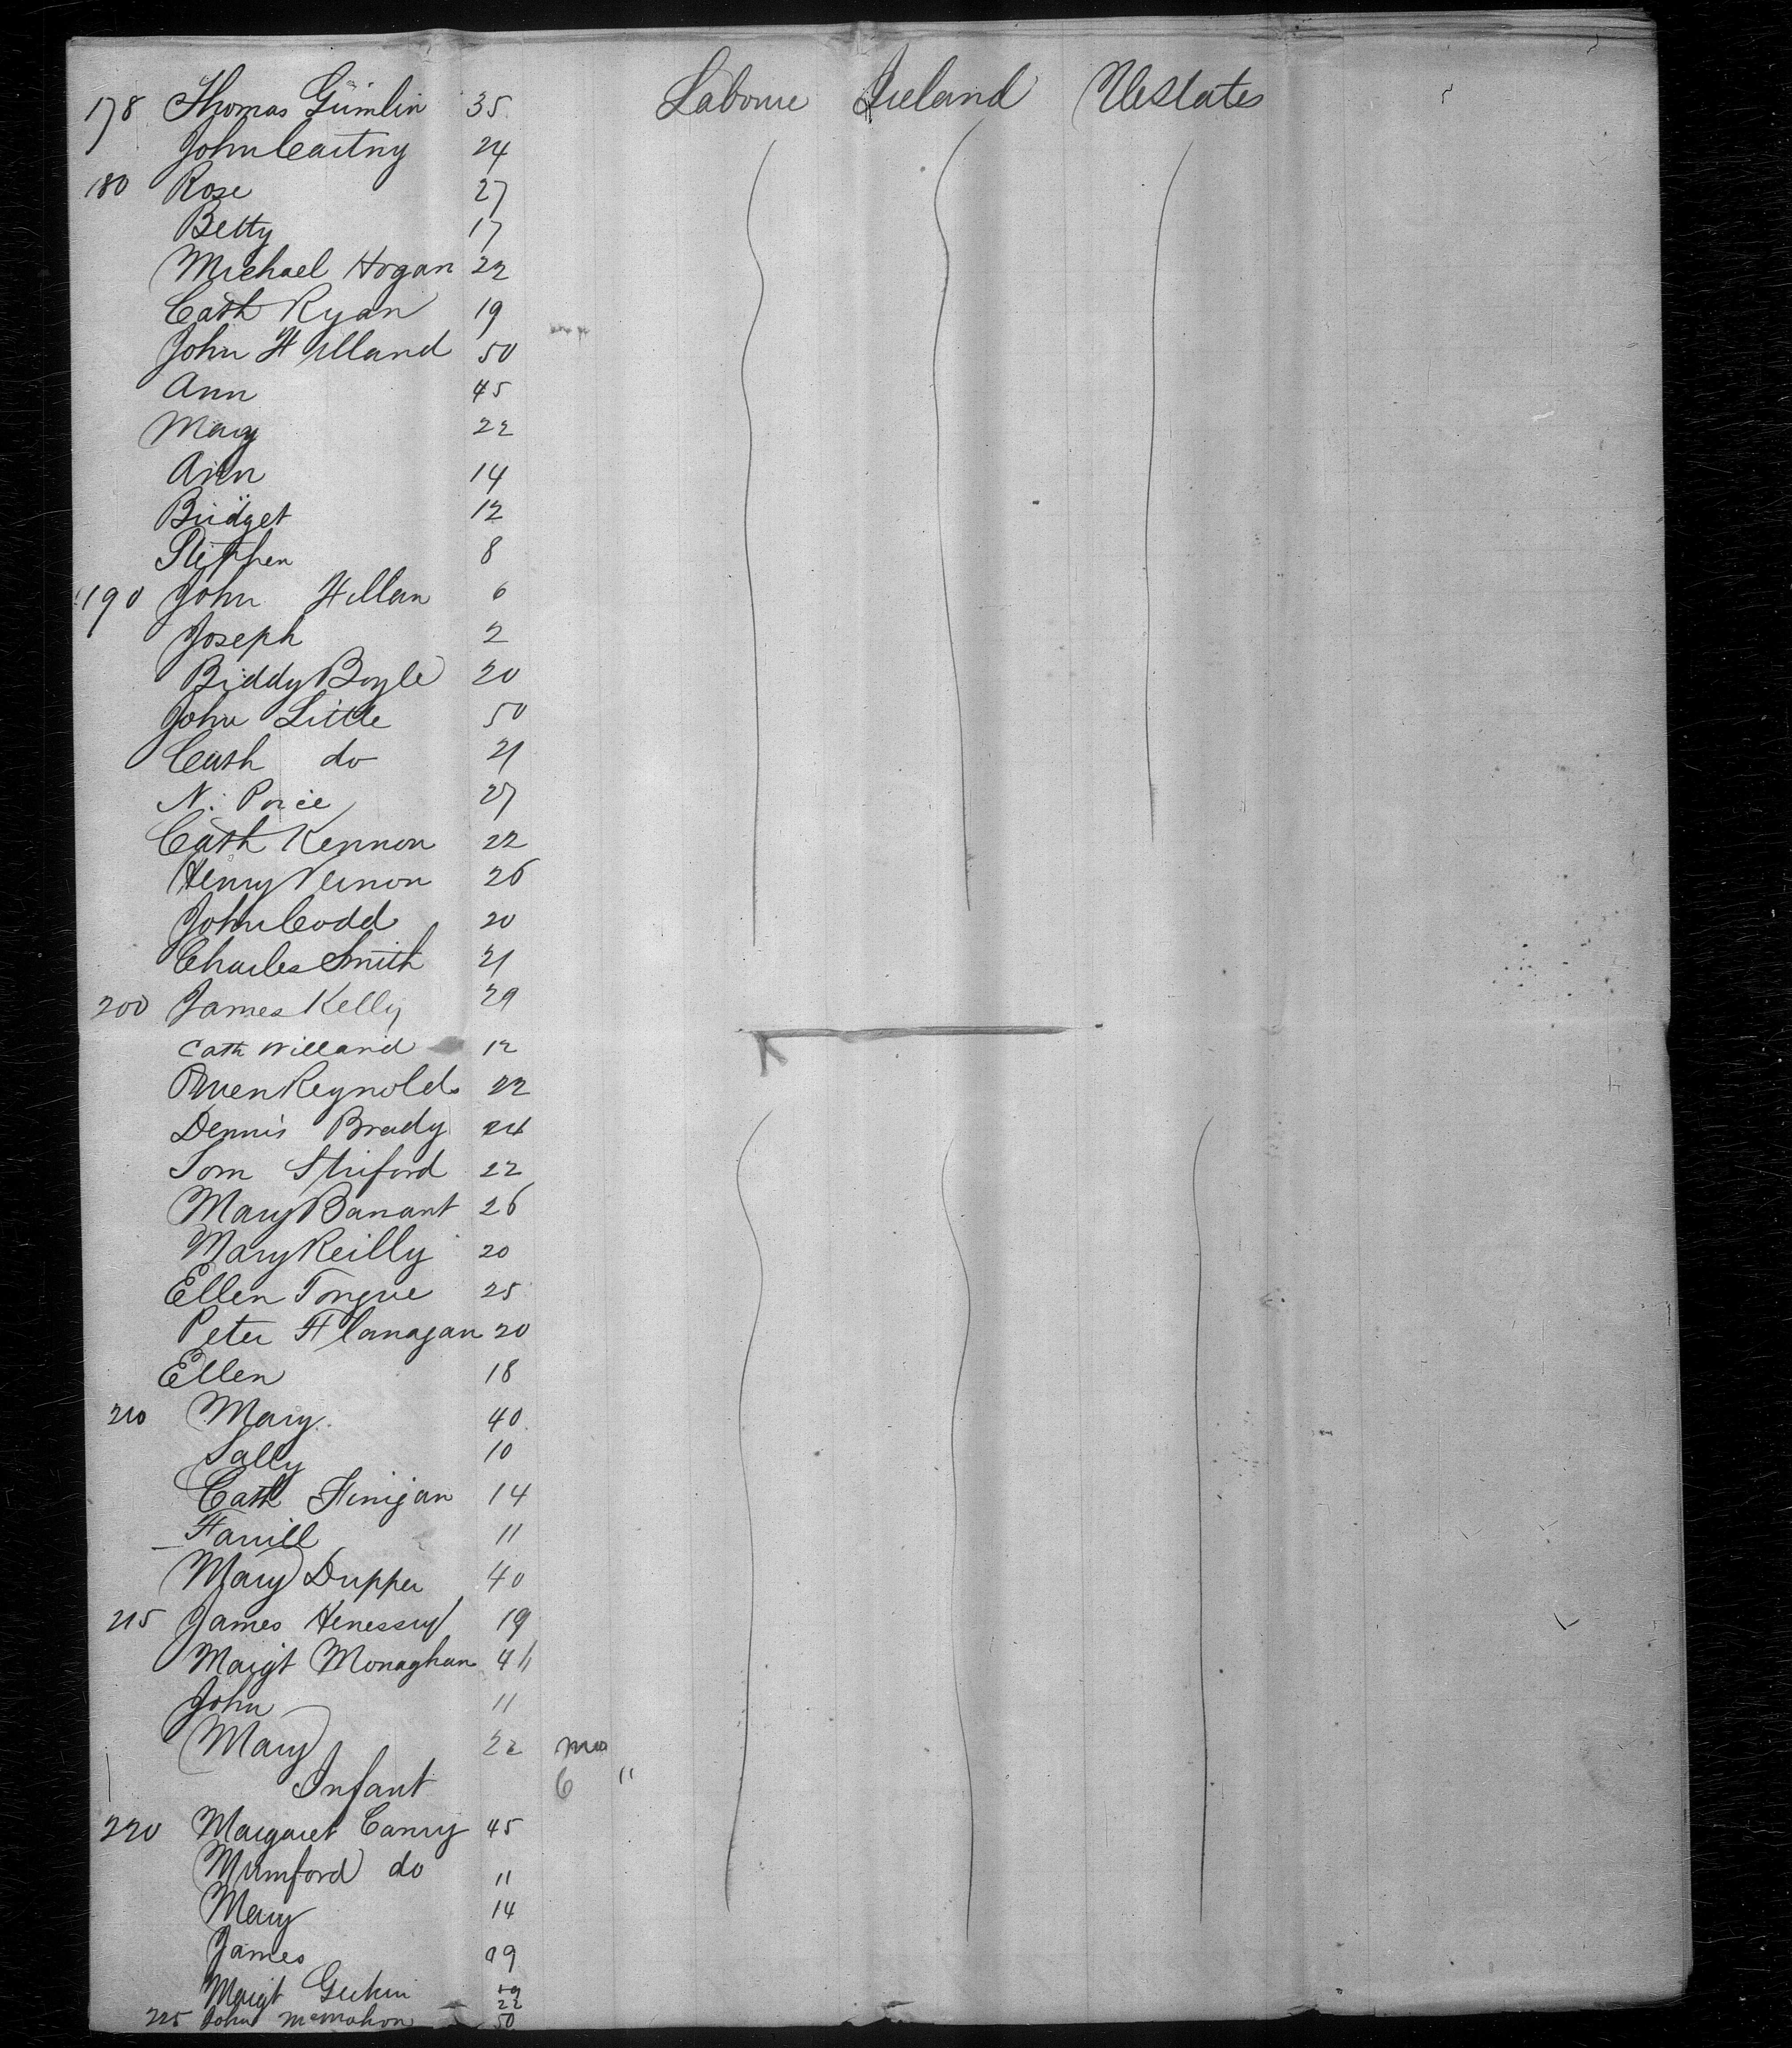 178 Thomas Gumlin 35 Laboure Ireland Ustates
John Cartny 24
180 Rose 27
Betty 17
Michael Hogan 22
Cath Ryan 19
John Hilland 50
Ann 45
Mary 22
Ann 14
Bridget 12
Stephen 8
190 John Hillan 6
Joseph 2
Biddy Boyle 20
John Little 50
Cath do 21
N. Price 27
Cath Kennon 22
Henry Vernon 26
John Codd 20
Charles Smith 21
200 James Kelly 29
Cath Willand 12
Owen Reynolds 22
Dennis Brady 24
Tom 22
Mary Banant 26
Mary Reilly 20
Ellen Tongue 25
Peter Flanagan 20
Ellen 18
210 Mary 40
Sally 10
Cath Finigan 14
Farrill 11
Mary Dupper 40
215 James Henessuy 19
Margt Monaghan
John 11
Mary 22 mo
Infant 6 "
220 Margaret Canry 45
Mumford do 11
Mary 14
James 19
Margt 22
225 John McMahon 50